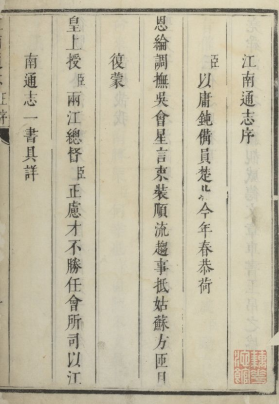 江南通志序
臣以庸鈍備員楚北今年春恭荷
恩綸調撫吳會星言束裝順流趨事抵姑蘇方匝月
復蒙
皇上授臣兩江總督臣正慮才不勝任會所司以江
南通志一書具詳